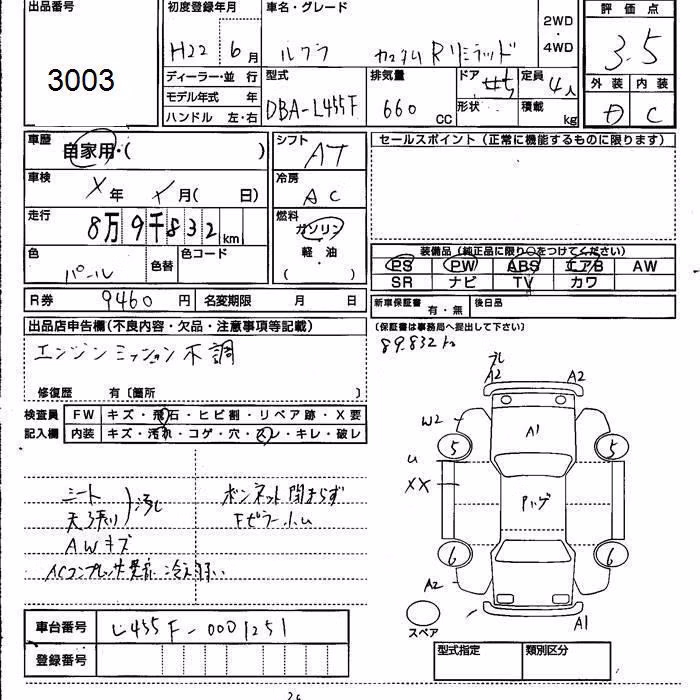 出品番号
3003
初度登録年月
H22 6月
車名・グレード
カスタム Rリミテッド
2WD
・
4WD
評価点
3.5
外装 内装
D C
ディーラー・並 行
モデル年式 年
ハンドル 左・右
型式
DBA-L455F
排気量
660 CC
ドア
形状
定員
4人
積載
kg
車歴
自家用・( )
車検
X年 月( 日)
走行
8万9千832km
色
パール
色替
色コード
シフト
AT
冷房
AC
燃料
ガソリン
軽 油
( )
セールスポイント (正常に機能するものに限ります)
装備品 (純正品に限り○をつけてください)
PS PW ABS エアB AW
SR ナビ TV カワ
R券 9460円
名変期限 月 日
新車保証書 有・無
後日品
(保証書は事務局へ提出して下さい)
89.832k
出品店申告欄(不良内容・欠品・注意事項等記載)
エンジンミッション不調
修復歴 有〔箇所 〕
検査員
記入欄
FW キズ・飛石・ヒビ割・リペア跡・X要
内装 キズ・汚れ・コゲ・穴・スレ・キレ・破レ
シート
天張り
汚れ
AWキズ
ボンネット閉まらず
A2
A2
W2
A1
5
5
XX
6
6
A2
A1
スペア
車台番号 L455F-0001251
登録番号
型式指定
類別区分